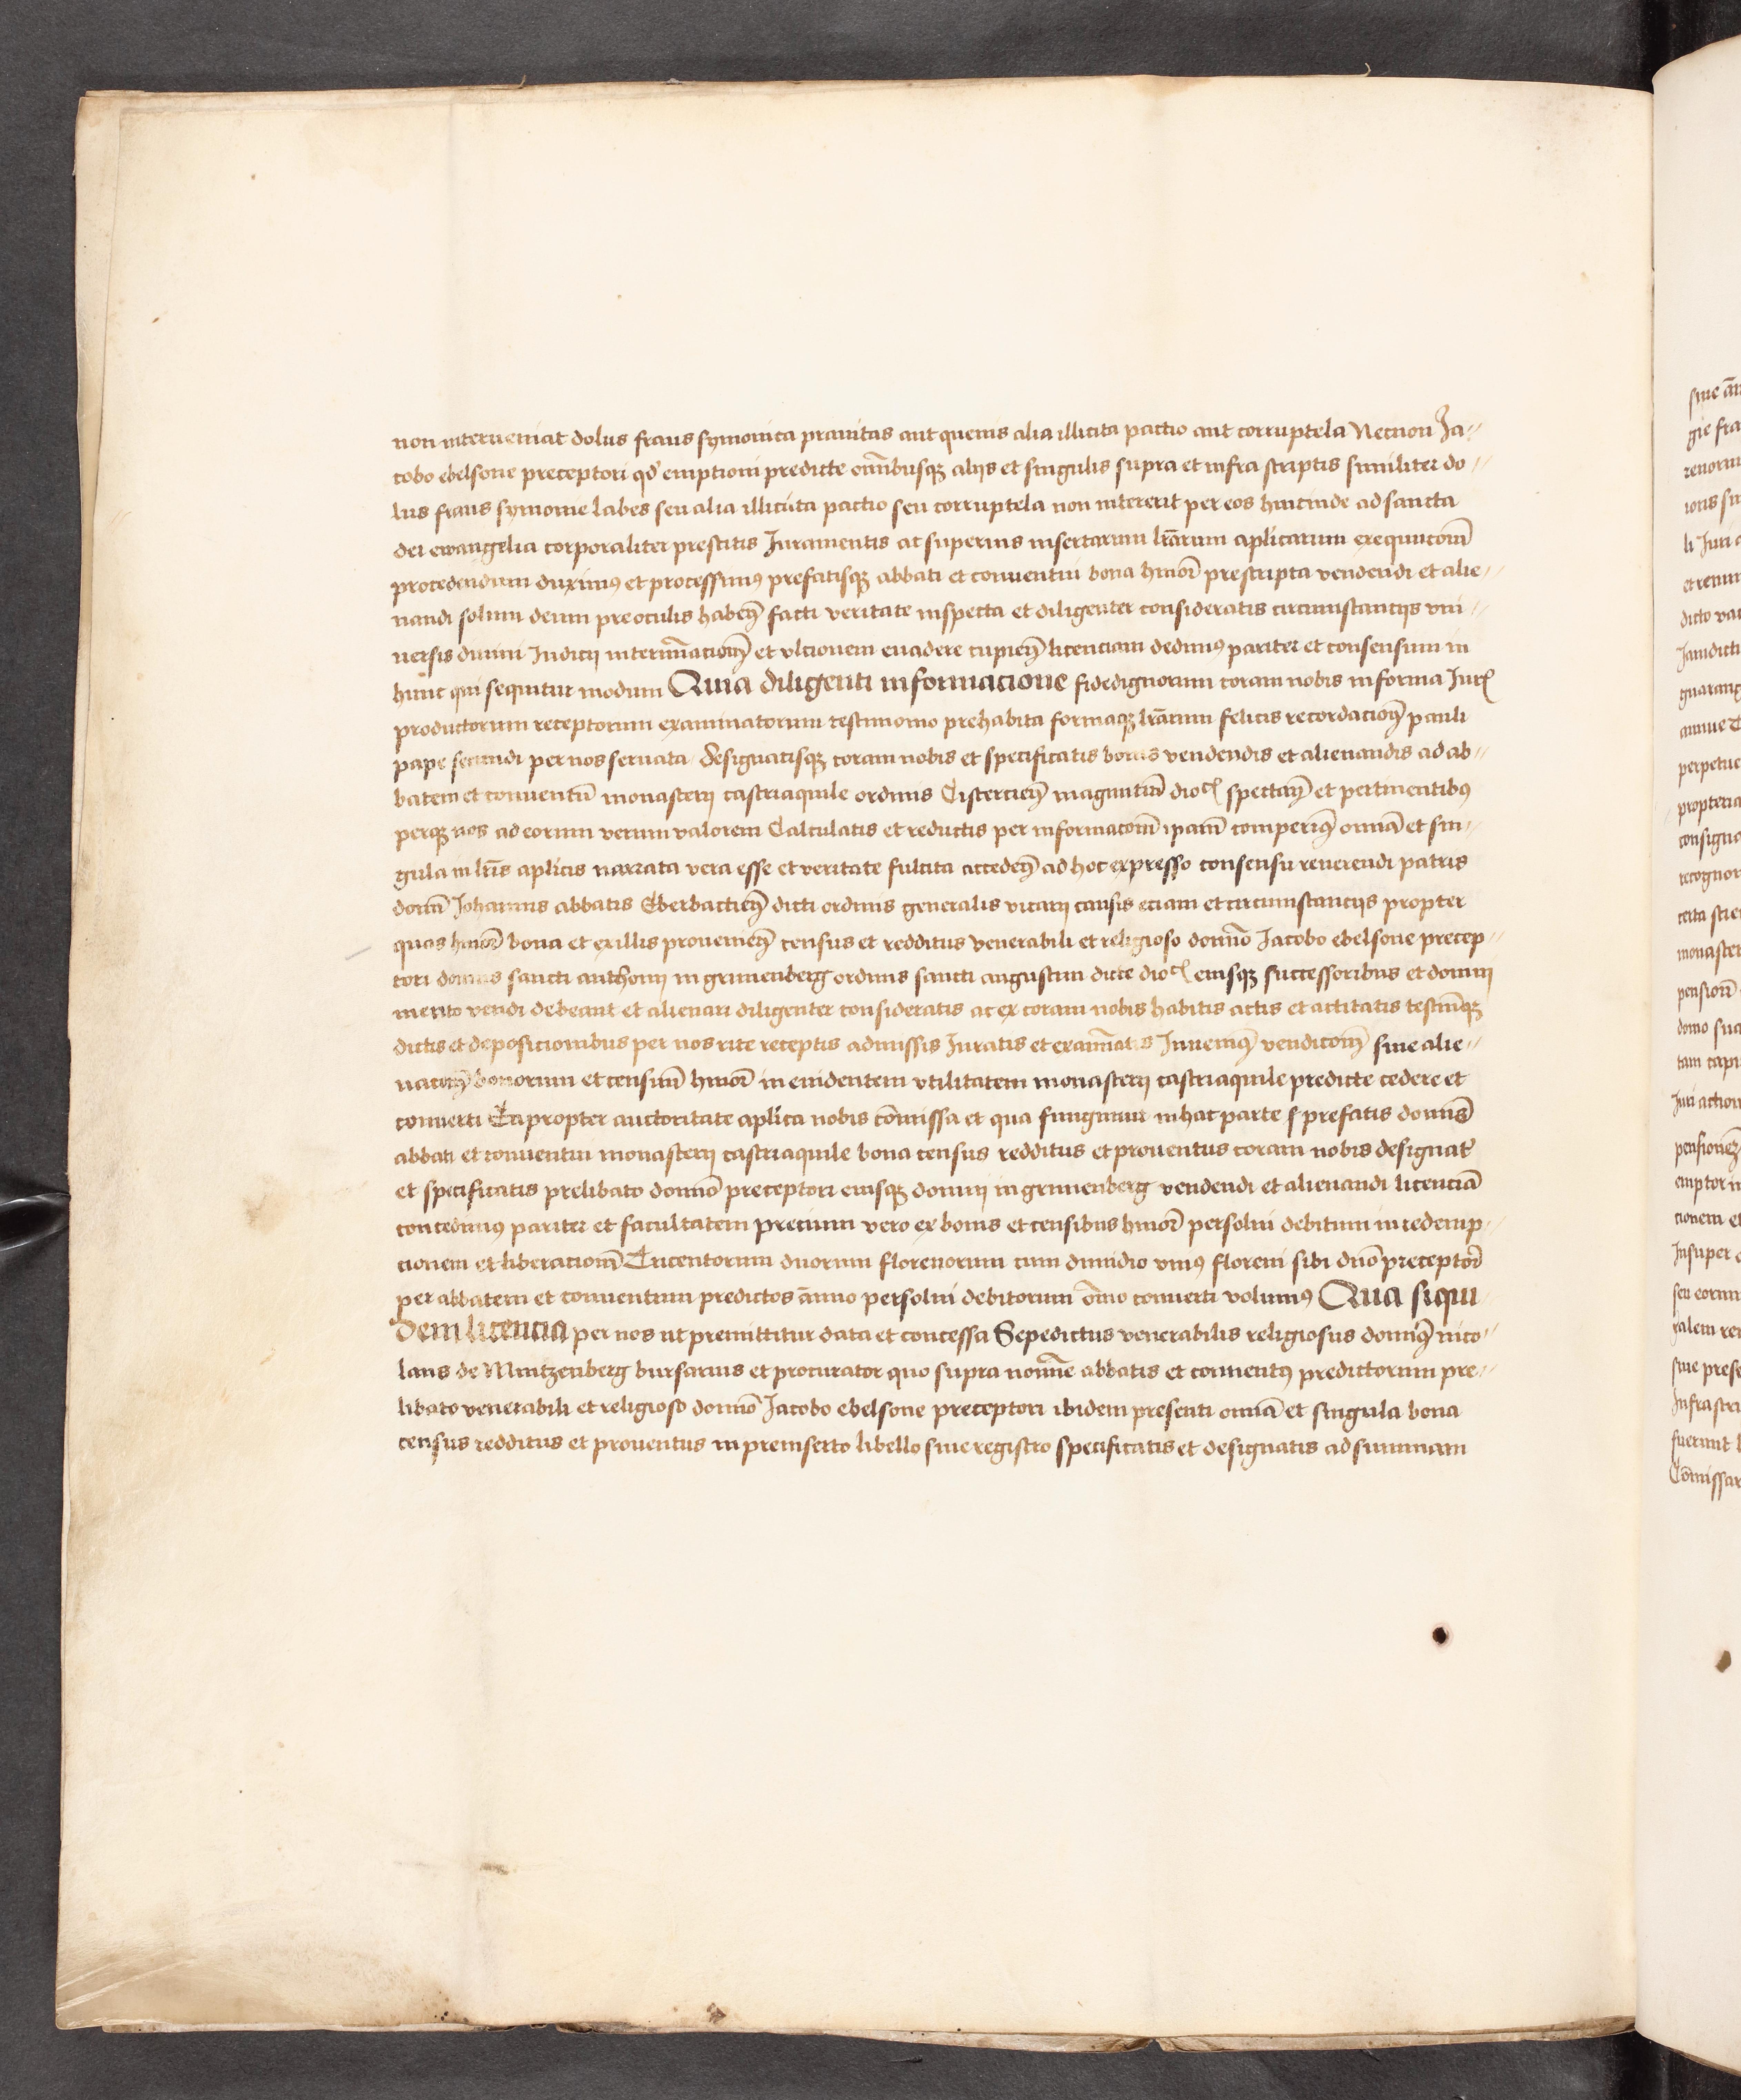 non interueniat dolus fraus symonica prauitas aut queuis alia illicita pactio aut corruptela Necnon Ja⸗
cobo ebelsone preceptori qd emptioni predicte om̄ibusqꝫ alijs et singulis supra et infra scriptis similiter do⸗
lus fraus symonie labes seu alia illicita pactio seu corruptela non intererit per eos hincinde ad sancta
dei ewangelia corporaliter prestitis Iuramentis ac superius insertarum lr̄arum aplicarum exequucōnī
procedendum duximꝰ et processimꝰ prefatisqꝫ abbati et conuentui bona hmōi prescripta vendendi et alie⸗
nandi solum deum pre oculis habeñ facti veritate inspecta et diligenter consideratis circumstancijs vni⸗
uersis diuini Iudicij interm̄acionꝭ et vltionem euadere cupieñ licenciam dedimꝰ pariter et consensum in
hunc qui sequitur modum Quia diligenti informacione fidedignorum coram nobis in forma Iurꝭ
productorum receptorum examinatorum testimonio prehabita formaqꝫ lr̄arum felicis recordacionꝭ pauli
pape secundi per nos seruata Designatisqꝫ coram nobis et specificatis bonis vendendis et alienandis ad ab⸗
batem et conuentū monasterij castriaquile ordinis Cistercieñ maguntiñ dioc̄ spectañ et pertinentibꝰ
perqꝫ nos ad eorum verum valorem Calculatis et reductis per informacōnī ipam̄ comperimꝰ omīa et sin⸗
gula in lr̄is aplicis narrata vera esse et veritate fulcita accedeñ ad hoc expresso consensu reuerendi patris
domī Johannis abbatis Eberbacieñ dicti ordinis generalis vicarij causis eciam et circumstancijs propter
quas hmōi bona et ex illis prouenieñ census et redditus venerabili et religioso domīo Jacobo ebelsone precep⸗
tori domus sancti anthonij in grunenberg ordinis sancti augustini dicte dioc̄ eiusqꝫ successoribus et domui
merito vendi debeant et alienari diligenter consideratis ac ex coram nobis habitis actis et actitatis testiūqꝫ
dictis et deposicionibus per nos rite receptis admissis Iuratis et exam̄atis Inuenimꝰ vendicōnī siue alie⸗
nacōnī bonorum et censuū hmōi in euidentem vtilitatem monasterij castriaquile predicte cedere et
conuerti Eapropter auctoritate aplica nobis cōmissa et qua fungimur in hac parte prefatis domīs
abbati et conuentui monasterij castriaquile bona census redditus et prouentus coram nobis designat̄
et specificatis prelibato domīo preceptori eiusqꝫ domui in grunenberg vendendi et alienandi licenciā
concedimꝰ pariter et facultatem precium vero ex bonis et censibus hmōi persolui debitum in redemp⸗
cionem et liberacionī Tricentorum duorum florenorum cum dimidio vniꝰ floreni sibi dn̄o preceptorī
per abbatem et conuentum predictos āno persolui debitorum om̄o conuerti volumꝰ Qua siqui
dem licencia per nos ut premittitur data et concessa Sepedictus venerabilis religiosus domīꝰ nico⸗
laus de Mintzenberg bursarius et procurator quo supra nomīe abbatis et conuentꝰ predictorum pre⸗
libato venerabili et religioso domīo Jacobo ebelsone preceptori ibidem presenti omīa et singula bona
census redditus et prouentus in preinserto libello siue registro specificatis et designatis ad summam